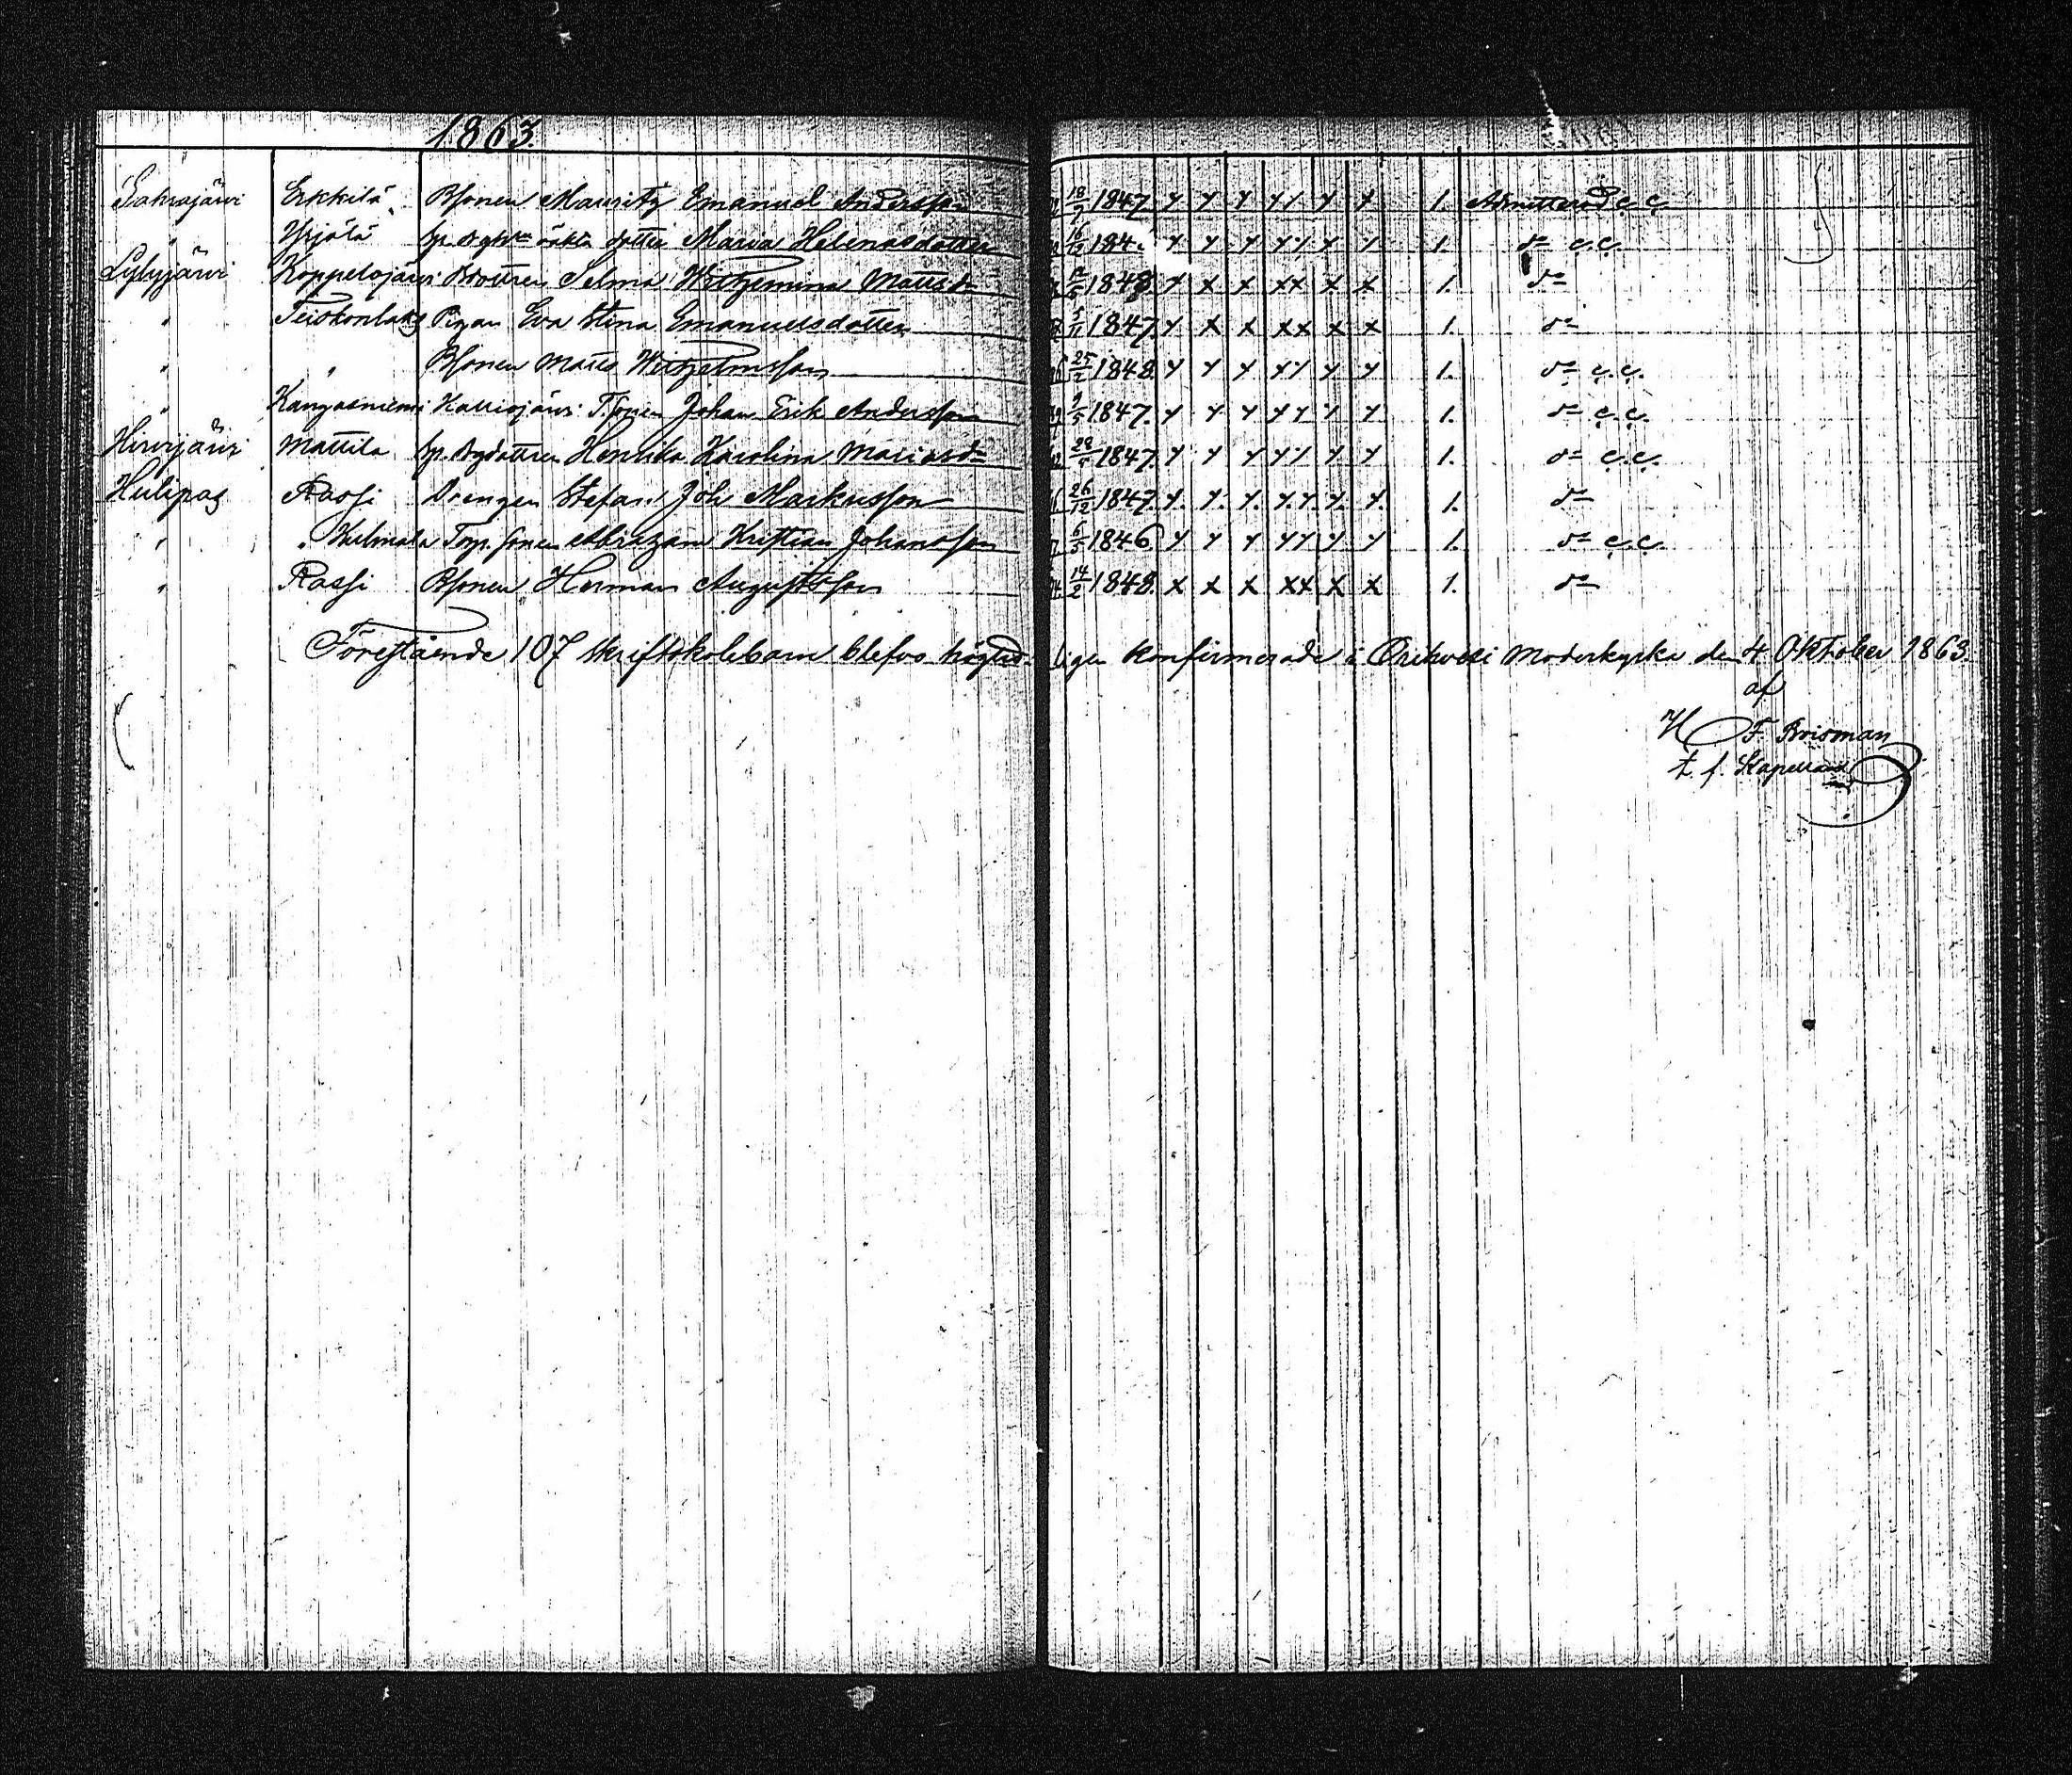 1863.
Sakrajärvi Erkkilä Bsonen Mauritz Emanuel Andersson 18/7 1847. y y y y y y y 1. Admitterad c. c.
" Yrjälä dotter Maria Helenasdotter 16/12 184 y y y y y y y 1. do c. c.
Lylyjärvi Koppelojärvi Bdottren Selma Wilhelmina Mattsdr 1848 y x x xx x x 1. do
" Teiskonlaks Pigan Eva Stina Emanuelsdotter 5/11 1847. y x x xx x x 1. do
" " Bsonen Matts Wilhelmsson 25/2 1848. y y y y y y y 1. do c. c.
" Kangasniemi Kalliojärvi T.sonen Johan Erik Andersson 9/5 1847. y y y y y y y 1. do c. c.
Hirvijärvi Mattila Henrika Karolina Mariasdr 1847. y y y y y y y 1. do c. c.
Hulipas Rassi Drengen Stefan Joh Markusson 26/12 1847. y. y. y. y. y. y. y. 1. do
" Kulmala Torp. sonen Abraham Kristian Johansson 6/5 1846. y y y y y y y 1. do c. c.
" Rassi Bsonen Herman Augustsson 14/2 1848. x x x xx x x 1. do
Förestående 107 skriftskolebarn blefvo högtidligen konfirmerade i Orihvesi Moderkyrka den 4 Oktober 1863.
af
H F. Brisman
t. f. Kapellan